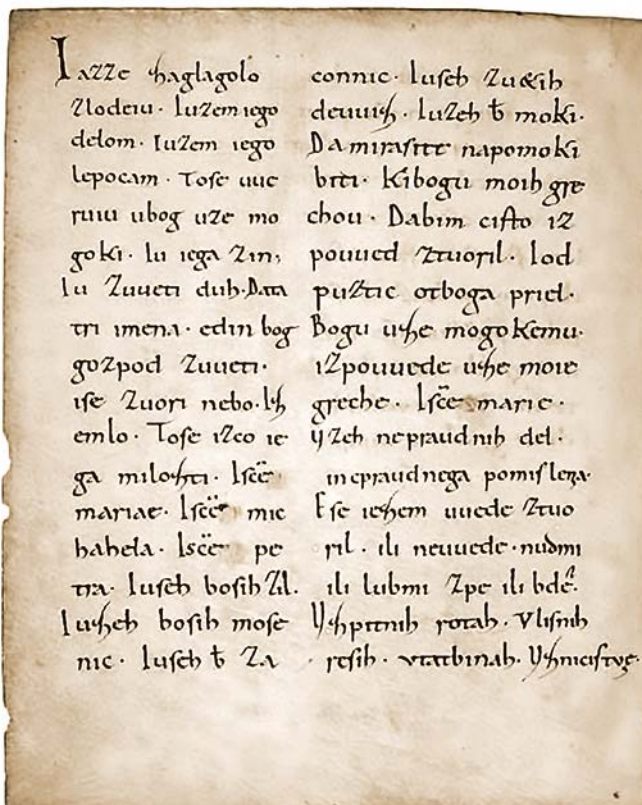 Iazze zaglagolo
zlodeiu · Iuzem iego
delom · Iuzem iego
lepocam · Tose uue
ruiu ubog uze mo
goki · Iu iega zin,
Iu zuueti duh · Data
tri imena · edin bog
gozpod zuueti ·
ise zuori nebo · Iz
emlo · Tose izco ie
ga milozti · Isc̄e
mariae · Isc̄e mic
hahela · Isc̄e pe
tra · Iuseh bosih zil ·
Iuzeh bosih mose
nic · Iuseh b̄ za
connic · Iuseh zu&ih
deuuiz · Iuzeh b̄ moki ·
Da mirasite napomoki
biti · Kibogu moih gre
chou · Dabim cisto iz
pouued ztuoril · Iod
puztic otboga priel ·
Bogu uze mogokemu ·
izpouuede uze moie
greche · Isc̄e marie ·
Uzeh nepraudnih del ·
inepraudnega pomisleza ·
Ese iezem uuede ztuo
ril · ili neuuede · nudmi
ili lubmi zpe ili bdē ·
Uzpitnih rotah · Vlisnih
resih · vtatbinah · Uznicistve ·